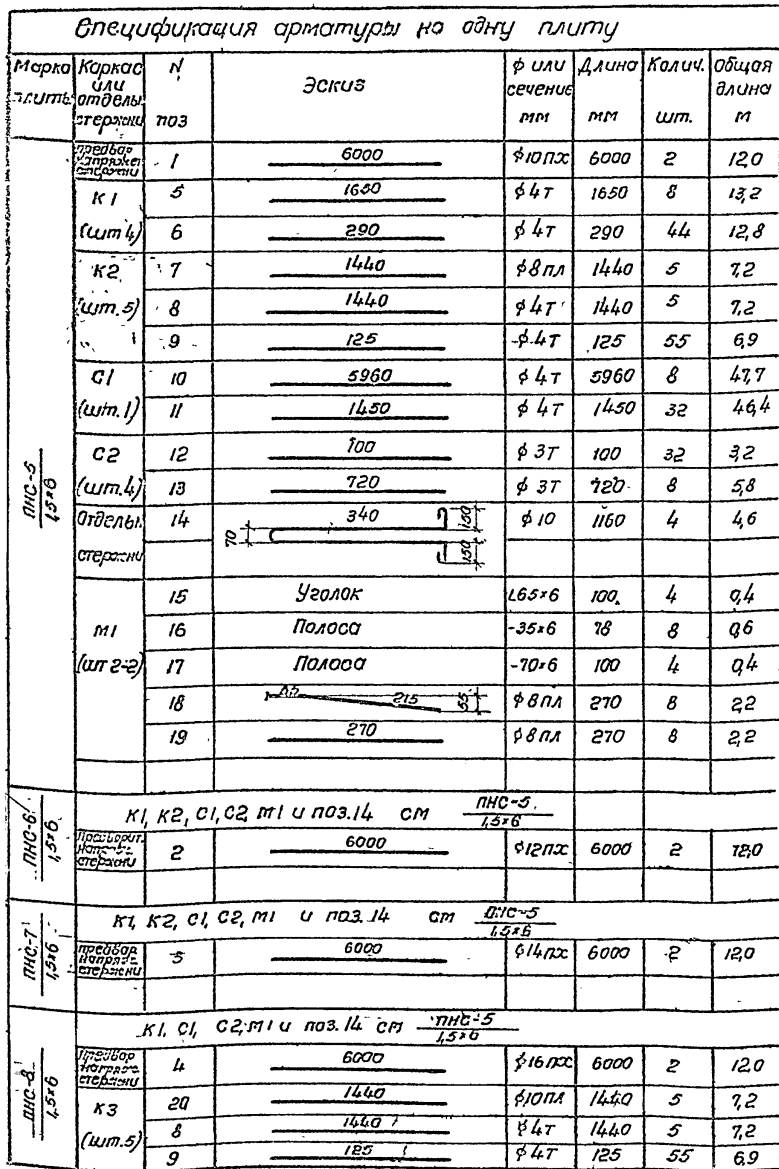 Спецификация арматуры на одну плиту
Марка плиты Каркас или отдельн. стержни N поз Эскиз ф или сечение мм Длина мм Колич. шт. Общая длина м
ПНС-5 1,5×6
предвар напряжен стержни 1 6000 ф10пх 6000 2 12,0
К1 5 1650 ф4т 1650 8 13,2
(шт 4) 6 290 ф4т 290 44 12,8
К2 7 1440 ф8пл 1440 5 7,2
(шт. 5) 8 1440 ф4т 1440 5 7,2
9 125 ф4т 125 55 6,9
С1 10 5960 ф4т 5960 8 47,7
(шт. 1) 11 1450 ф4т 1450 32 46,4
С2 12 100 ф3т 100 32 3,2
(шт. 4) 13 720 ф3т 720 8 5,8
Отдельн. стержни 14 340 70 150 150 ф10 1160 4 4,6
15 Уголок L65×6 100 4 0,4
М1 16 Полоса -35×6 78 8 0,6
(шт 2=2) 17 Полоса -70×6 100 4 0,4
18 215 55 ф8пл 270 8 2,2
19 270 ф8пл 270 8 2,2
ПНС-6 1,5×6
К1, К2, С1, С2, М1 и поз. 14 см ПНС-5 1,5×6
2 6000 ф12пх 6000 2 12,0
ПНС-7 1,5×6
К1, К2, С1, С2, М1 и поз. 14 см ПНС-5 1,5×6
предвар напряж стержни 3 6000 ф14пх 6000 2 12,0
ПНС-8 1,5×6
К1, С1, С2, М1 и поз. 14 см ПНС-5 1,5×6
предвар напряж стержни 4 6000 ф16пх 6000 2 12,0
К3 20 1440 ф10пл 1440 5 7,2
(шт. 5) 8 1440 ф4т 1440 5 7,2
9 125 ф4т 125 55 6,9